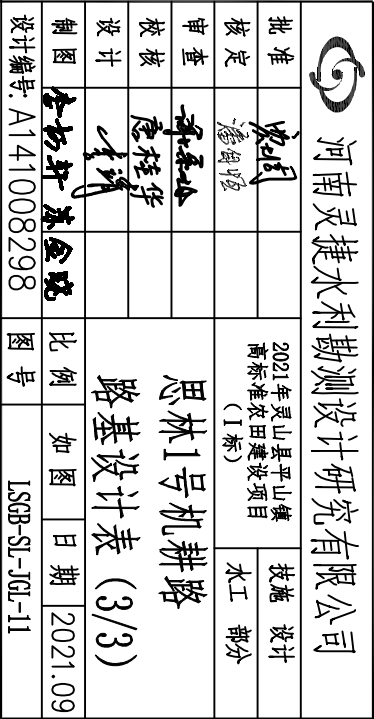 河南灵捷水利勘测设计研究有限公司
批准
核定 潘自恒
审查
校核 唐桂华
设计 李清
制图 苏金晓
设计编号: A141008298
2021年灵山县平山镇
高标准农田建设项目
（Ⅰ标）
技施 设计
水工 部分
思林1号机耕路
路基设计表（3/3）
比例 如图 日期 2021.09
图号 LSGB-SL-JGL-11